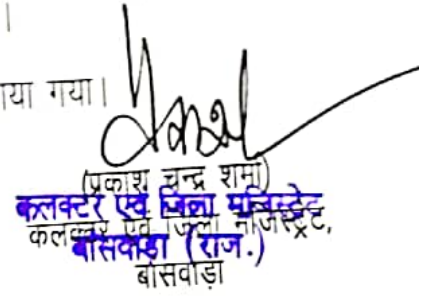 ।
या गया।
(प्रकाश चन्द्र शर्मा)
कलक्टर एवं जिला मजिस्ट्रेट
कलक्टर एवं जिला मजिस्ट्रेट,
बांसवाडा (राज.)
बांसवाड़ा